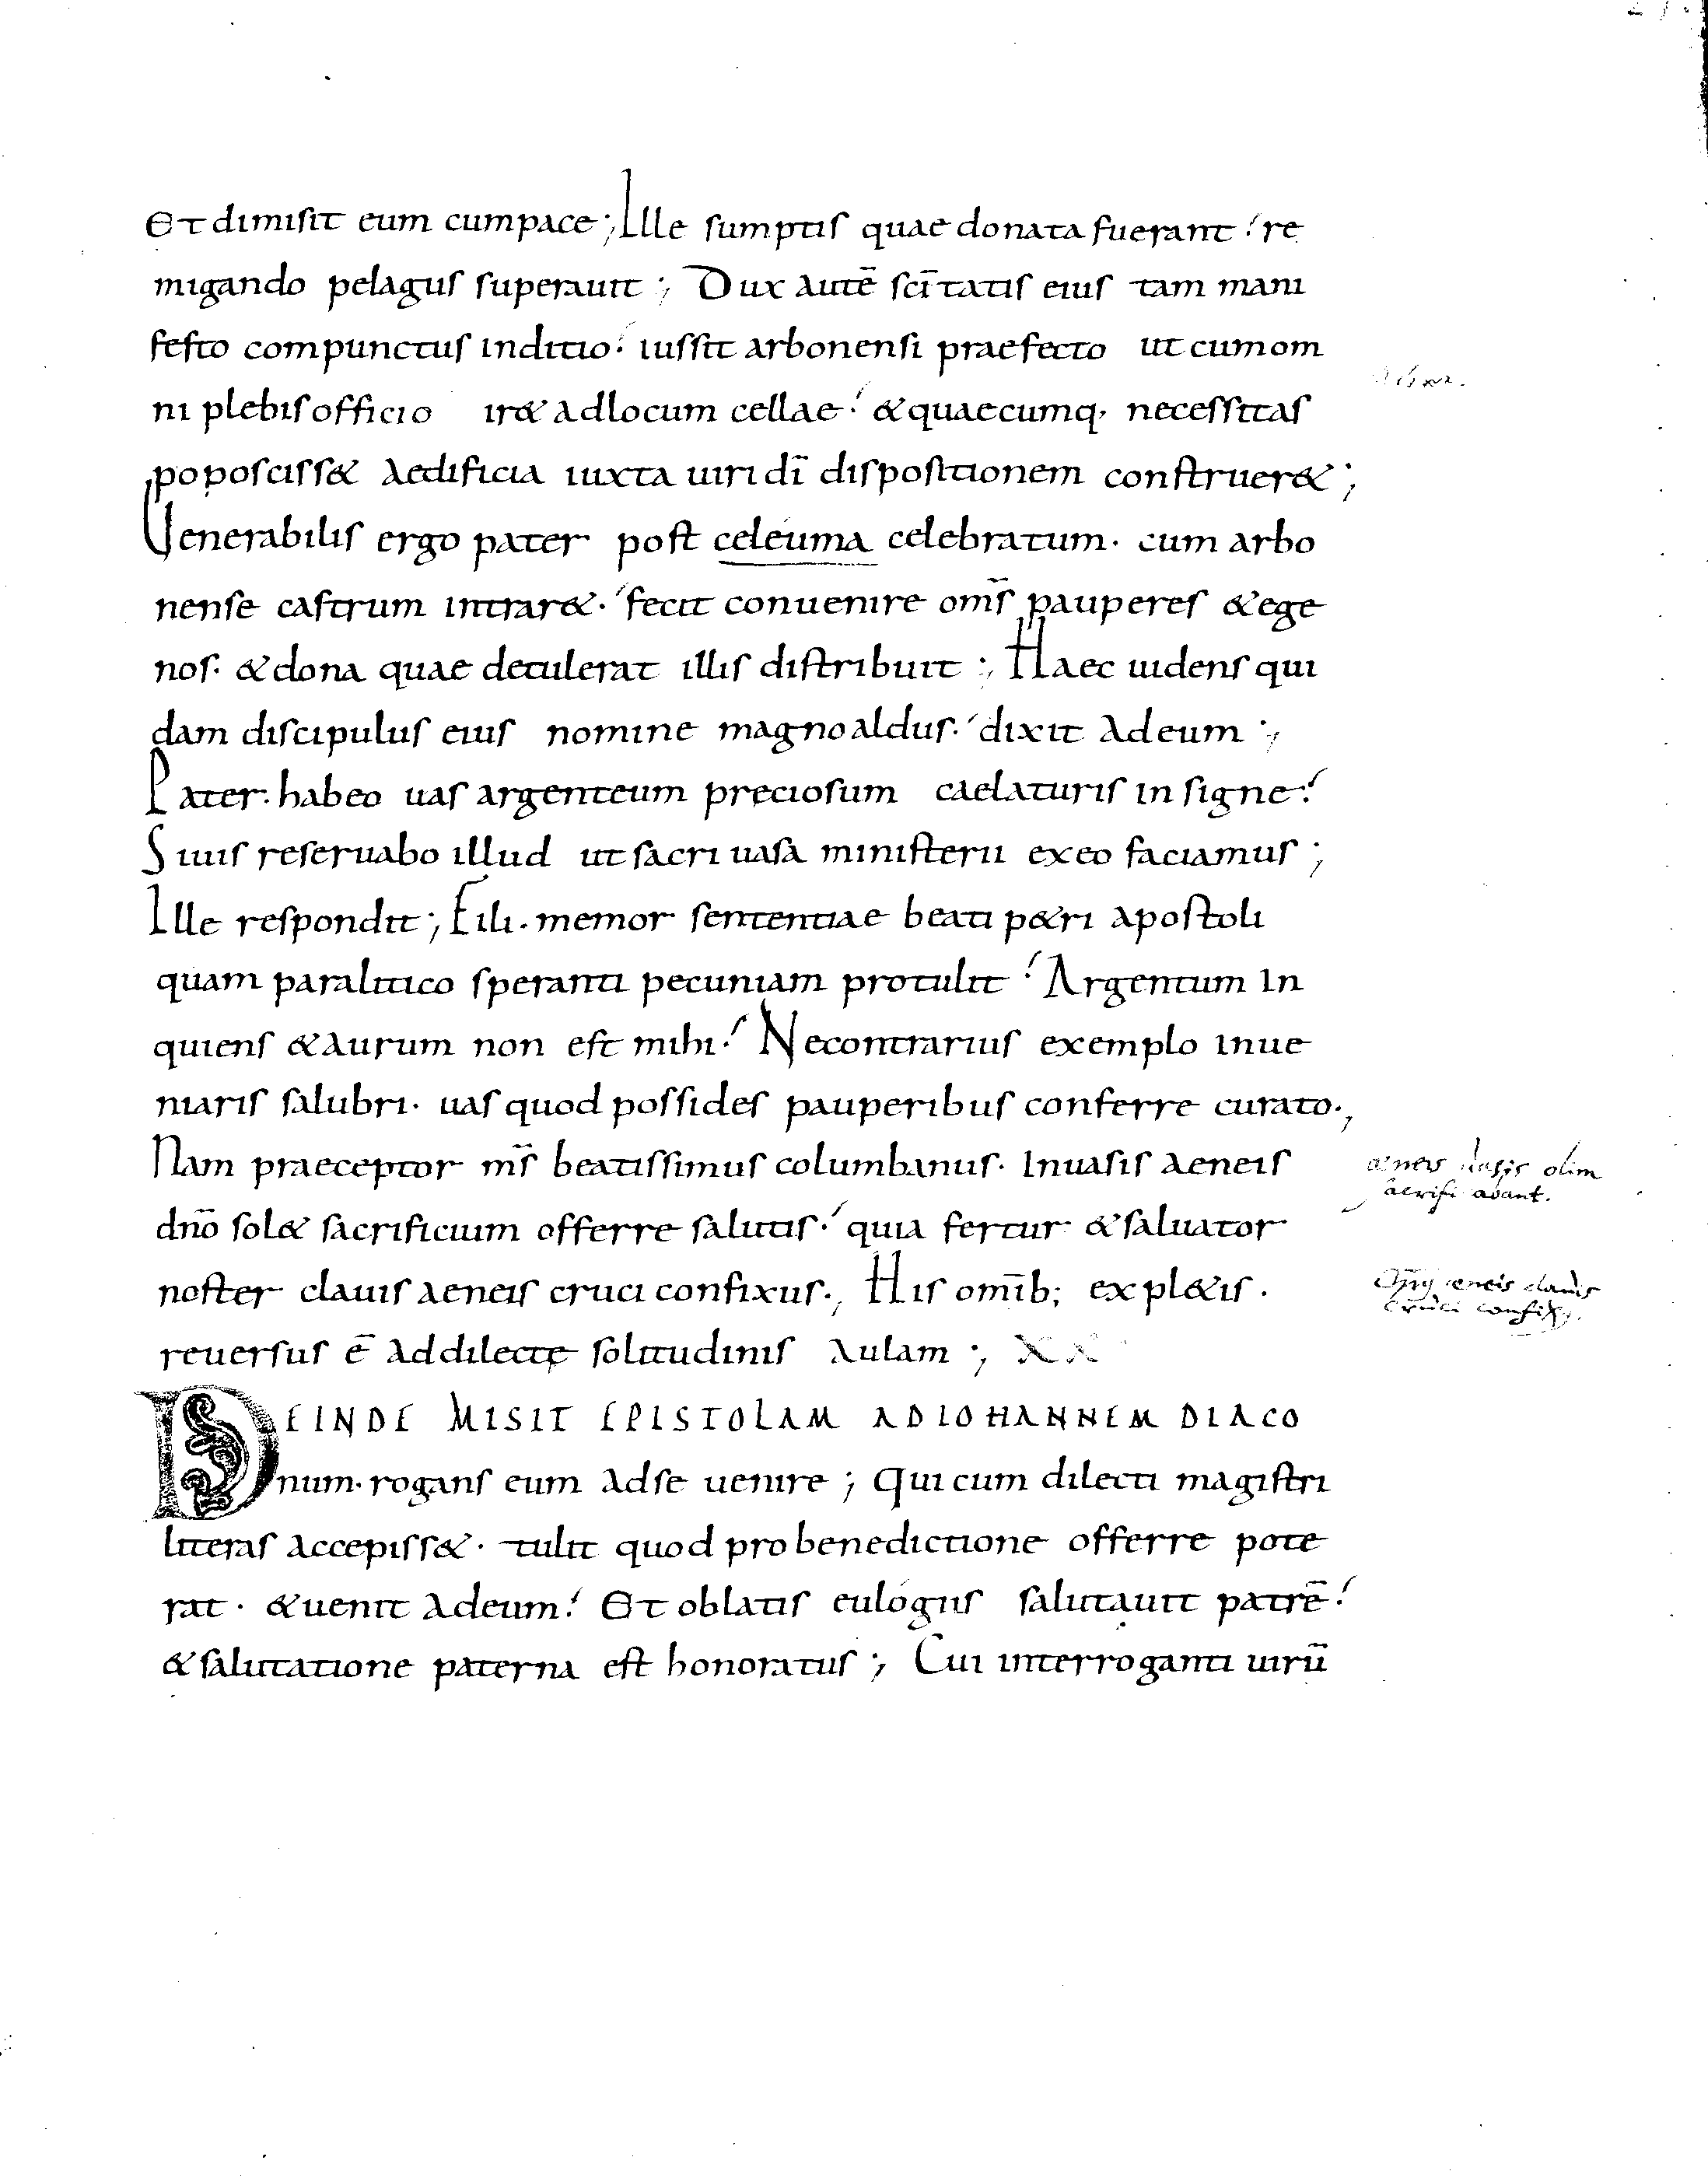 Et dimisit eum cum pace; Ille sumptis quae donata fuerant. re
migando pelagus superauit; Dux autē sc̄itatis eius tam mani
festo compunctus inditio. iussit arbonensi praefecto ut cum om
ni plebis officio ir& ad locum cellae. & quaecumq, necessitas
poposciss& aedificia iuxta uiri dī dispositionem construer&;
Uenerabilis ergo pater post celeuma celebratum. cum arbo
nense castrum intrar&. fecit conuenire om̄s pauperes & ege
nos. & dona quae detulerat illis distribuit; Haec uidens qui
dam discipulus eius nomine magnoaldus. dixit ad eum;
Pater. habeo uas argenteum preciosum caelaturis insigne.
Si uis reseruabo illud ut sacri uasa ministerii ex eo faciamus;
Ille respondit; Fili. memor sententiae beati p&ri apostoli
quam paralitico speranti pecuniam protulit. Argentum in
quiens & aurum non est mihi. Ne contrarius exemplo inue
niaris salubri. uas quod possides pauperibus conferre curato.,
Nam praeceptor m̄s beatissimus columbanus. In uasis aeneis
dn̄o sol& sacrificium offerre salutis. quia fertur & saluator
noster clauis aeneis cruci confixus., His om̄ib; expl&is.
reuersus ē ad dilectę solitudinis aulam; XX
DEINDE MISIT EPISTOLAM AD IOHANNEM DIACO
num. rogans eum ad se uenire; Qui cum dilecti magistri
litteras accepiss&. tulit quod pro benedictione offerre pote
rat. & uenit ad eum. Et oblatis eulogiis salutauit patrē.
& salutatione paterna est honoratus; Cui interroganti uirū
aeneis uasis olim
sacrificabant.
aeneis clauis
cruci confix9.